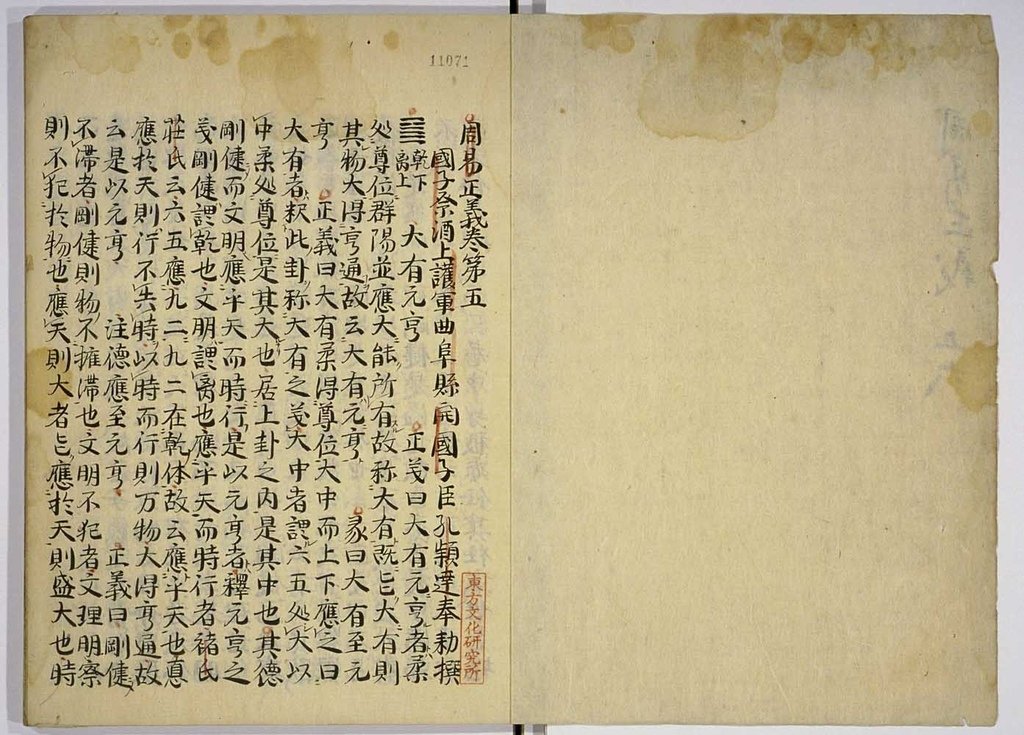 11071
周易正義卷第五
國子祭酒上護軍曲阜縣開國子臣孔穎達奉勅撰
東方文化研究所
䷍ 乾下离上 大有元亨 正義曰大有元亨者柔
処尊位群陽並應大能所有故称大有既皀大有則
其物大得亨通故云大有元亨 彖曰大有至元
亨 正義曰大有柔得尊位大中而上下應之曰
大有者釈此卦称大有之義大中者謂六五処大以
中柔処尊位是其大也居上卦之内是其中也其德
剛健而文明應乎天而時行是以元亨者釋元亨之
義剛健謂乾也文明謂离也應乎天而時行者禇氏
莊氏云六五應九二九二在乾体故云應乎天也
應於天則行不失時以時而行則万物大得亨通故
云是以元亨 注德應至元亨 正義曰剛健
不滞者剛健則物不擁滞也文明不犯者文理明察
則不犯於物也應天則大者皀應於天則盛大也時